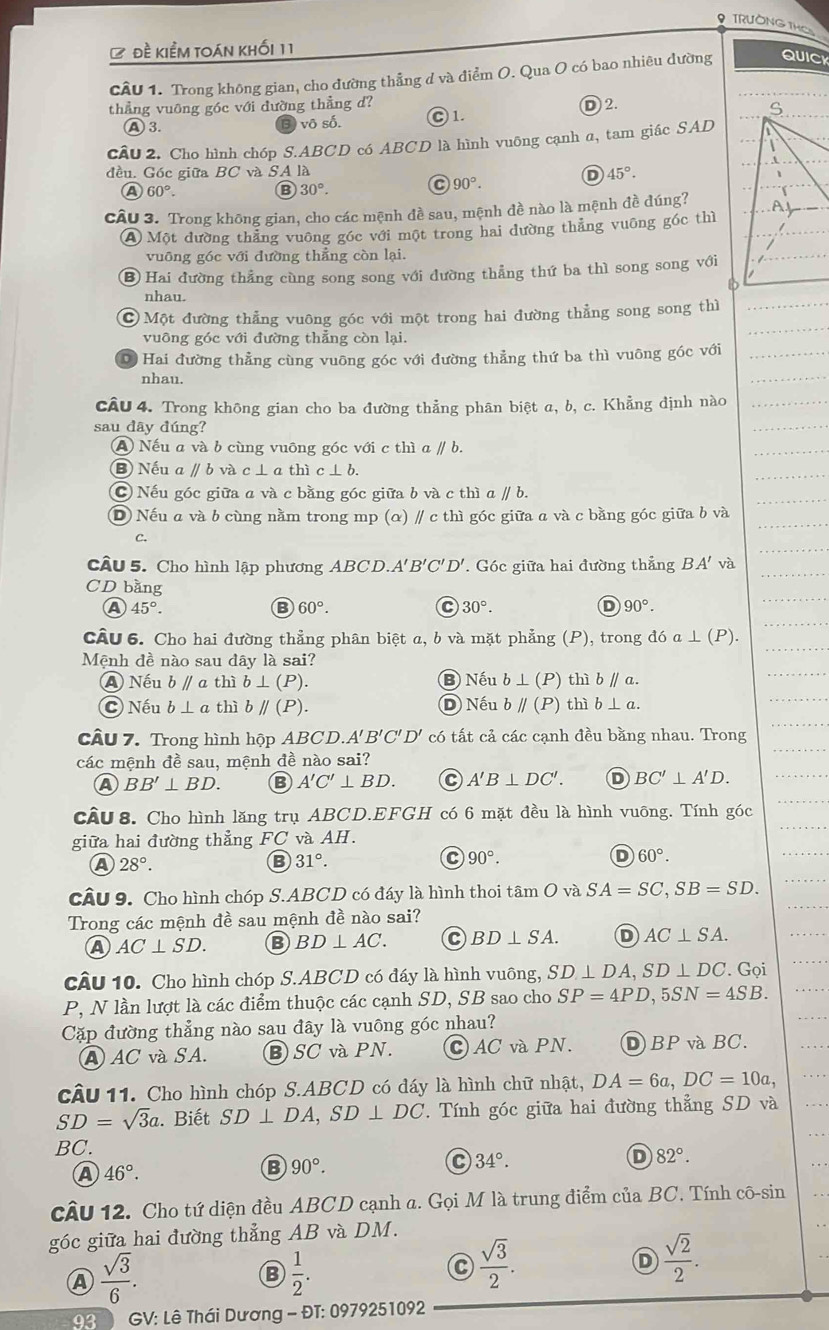 TRƯỜNG THCS
ĐỀ KIỂM TOÁN KHỐI 11
QUICK
CÂU 1. Trong không gian, cho đường thẳng d và điểm O. Qua O có bao nhiêu đường
thẳng vuông góc với đường thẳng d?
A 3. B vô số. C 1. D 2.
CÂU 2. Cho hình chóp S.ABCD có ABCD là hình vuông cạnh a, tam giác SAD
đều. Góc giữa BC và SA là
A 60°. B 30°. C 90°. D 45°.
CÂU 3. Trong không gian, cho các mệnh đề sau, mệnh đề nào là mệnh đề đúng?
A Một đường thẳng vuông góc với một trong hai đường thẳng vuông góc thì
vuông góc với đường thẳng còn lại.
B Hai đường thẳng cùng song song với đường thẳng thứ ba thì song song với
nhau.
C Một đường thẳng vuông góc với một trong hai đường thẳng song song thì
vuông góc với đường thẳng còn lại.
D Hai đường thẳng cùng vuông góc với đường thẳng thứ ba thì vuông góc với
nhau.
S
A
CÂU 4. Trong không gian cho ba đường thẳng phân biệt a, b, c. Khẳng định nào
sau đây đúng?
A Nếu a và b cùng vuông góc với c thì a // b.
B Nếu a // b và c ⊥ a thì c ⊥ b.
C Nếu góc giữa a và c bằng góc giữa b và c thì a // b.
D Nếu a và b cùng nằm trong mp (α) // c thì góc giữa a và c bằng góc giữa b và
c.
CÂU 5. Cho hình lập phương ABCD.A′B′C′D′. Góc giữa hai đường thẳng BA′ và
CD bằng
A 45°. B 60°. C 30°. D 90°.
CÂU 6. Cho hai đường thẳng phân biệt a, b và mặt phẳng (P), trong đó a ⊥ (P).
Mệnh đề nào sau đây là sai?
A Nếu b // a thì b ⊥ (P). B Nếu b ⊥ (P) thì b // a.
C Nếu b ⊥ a thì b // (P). D Nếu b // (P) thì b ⊥ a.
CÂU 7. Trong hình hộp ABCD.A′B′C′D′ có tất cả các cạnh đều bằng nhau. Trong
các mệnh đề sau, mệnh đề nào sai?
A BB′ ⊥ BD. B A′C′ ⊥ BD. C A′B ⊥ DC′. D BC′ ⊥ A′D.
CÂU 8. Cho hình lăng trụ ABCD.EFGH có 6 mặt đều là hình vuông. Tính góc
giữa hai đường thẳng FC và AH.
A 28°. B 31°. C 90°. D 60°.
CÂU 9. Cho hình chóp S.ABCD có đáy là hình thoi tâm O và SA = SC, SB = SD.
Trong các mệnh đề sau mệnh đề nào sai?
A AC ⊥ SD. B BD ⊥ AC. C BD ⊥ SA. D AC ⊥ SA.
CÂU 10. Cho hình chóp S.ABCD có đáy là hình vuông, SD ⊥ DA, SD ⊥ DC. Gọi
P, N lần lượt là các điểm thuộc các cạnh SD, SB sao cho SP = 4PD, 5SN = 4SB.
Cặp đường thẳng nào sau đây là vuông góc nhau?
A AC và SA. B SC và PN. C AC và PN. D BP và BC.
CÂU 11. Cho hình chóp S.ABCD có đáy là hình chữ nhật, DA = 6a, DC = 10a,
SD = √3a. Biết SD ⊥ DA, SD ⊥ DC. Tính góc giữa hai đường thẳng SD và
BC.
A 46°. B 90°. C 34°. D 82°.
CÂU 12. Cho tứ diện đều ABCD cạnh a. Gọi M là trung điểm của BC. Tính cô-sin
góc giữa hai đường thẳng AB và DM.
A √3/6. B 1/2. C √3/2. D √2/2.
93 GV: Lê Thái Dương – ĐT: 0979251092